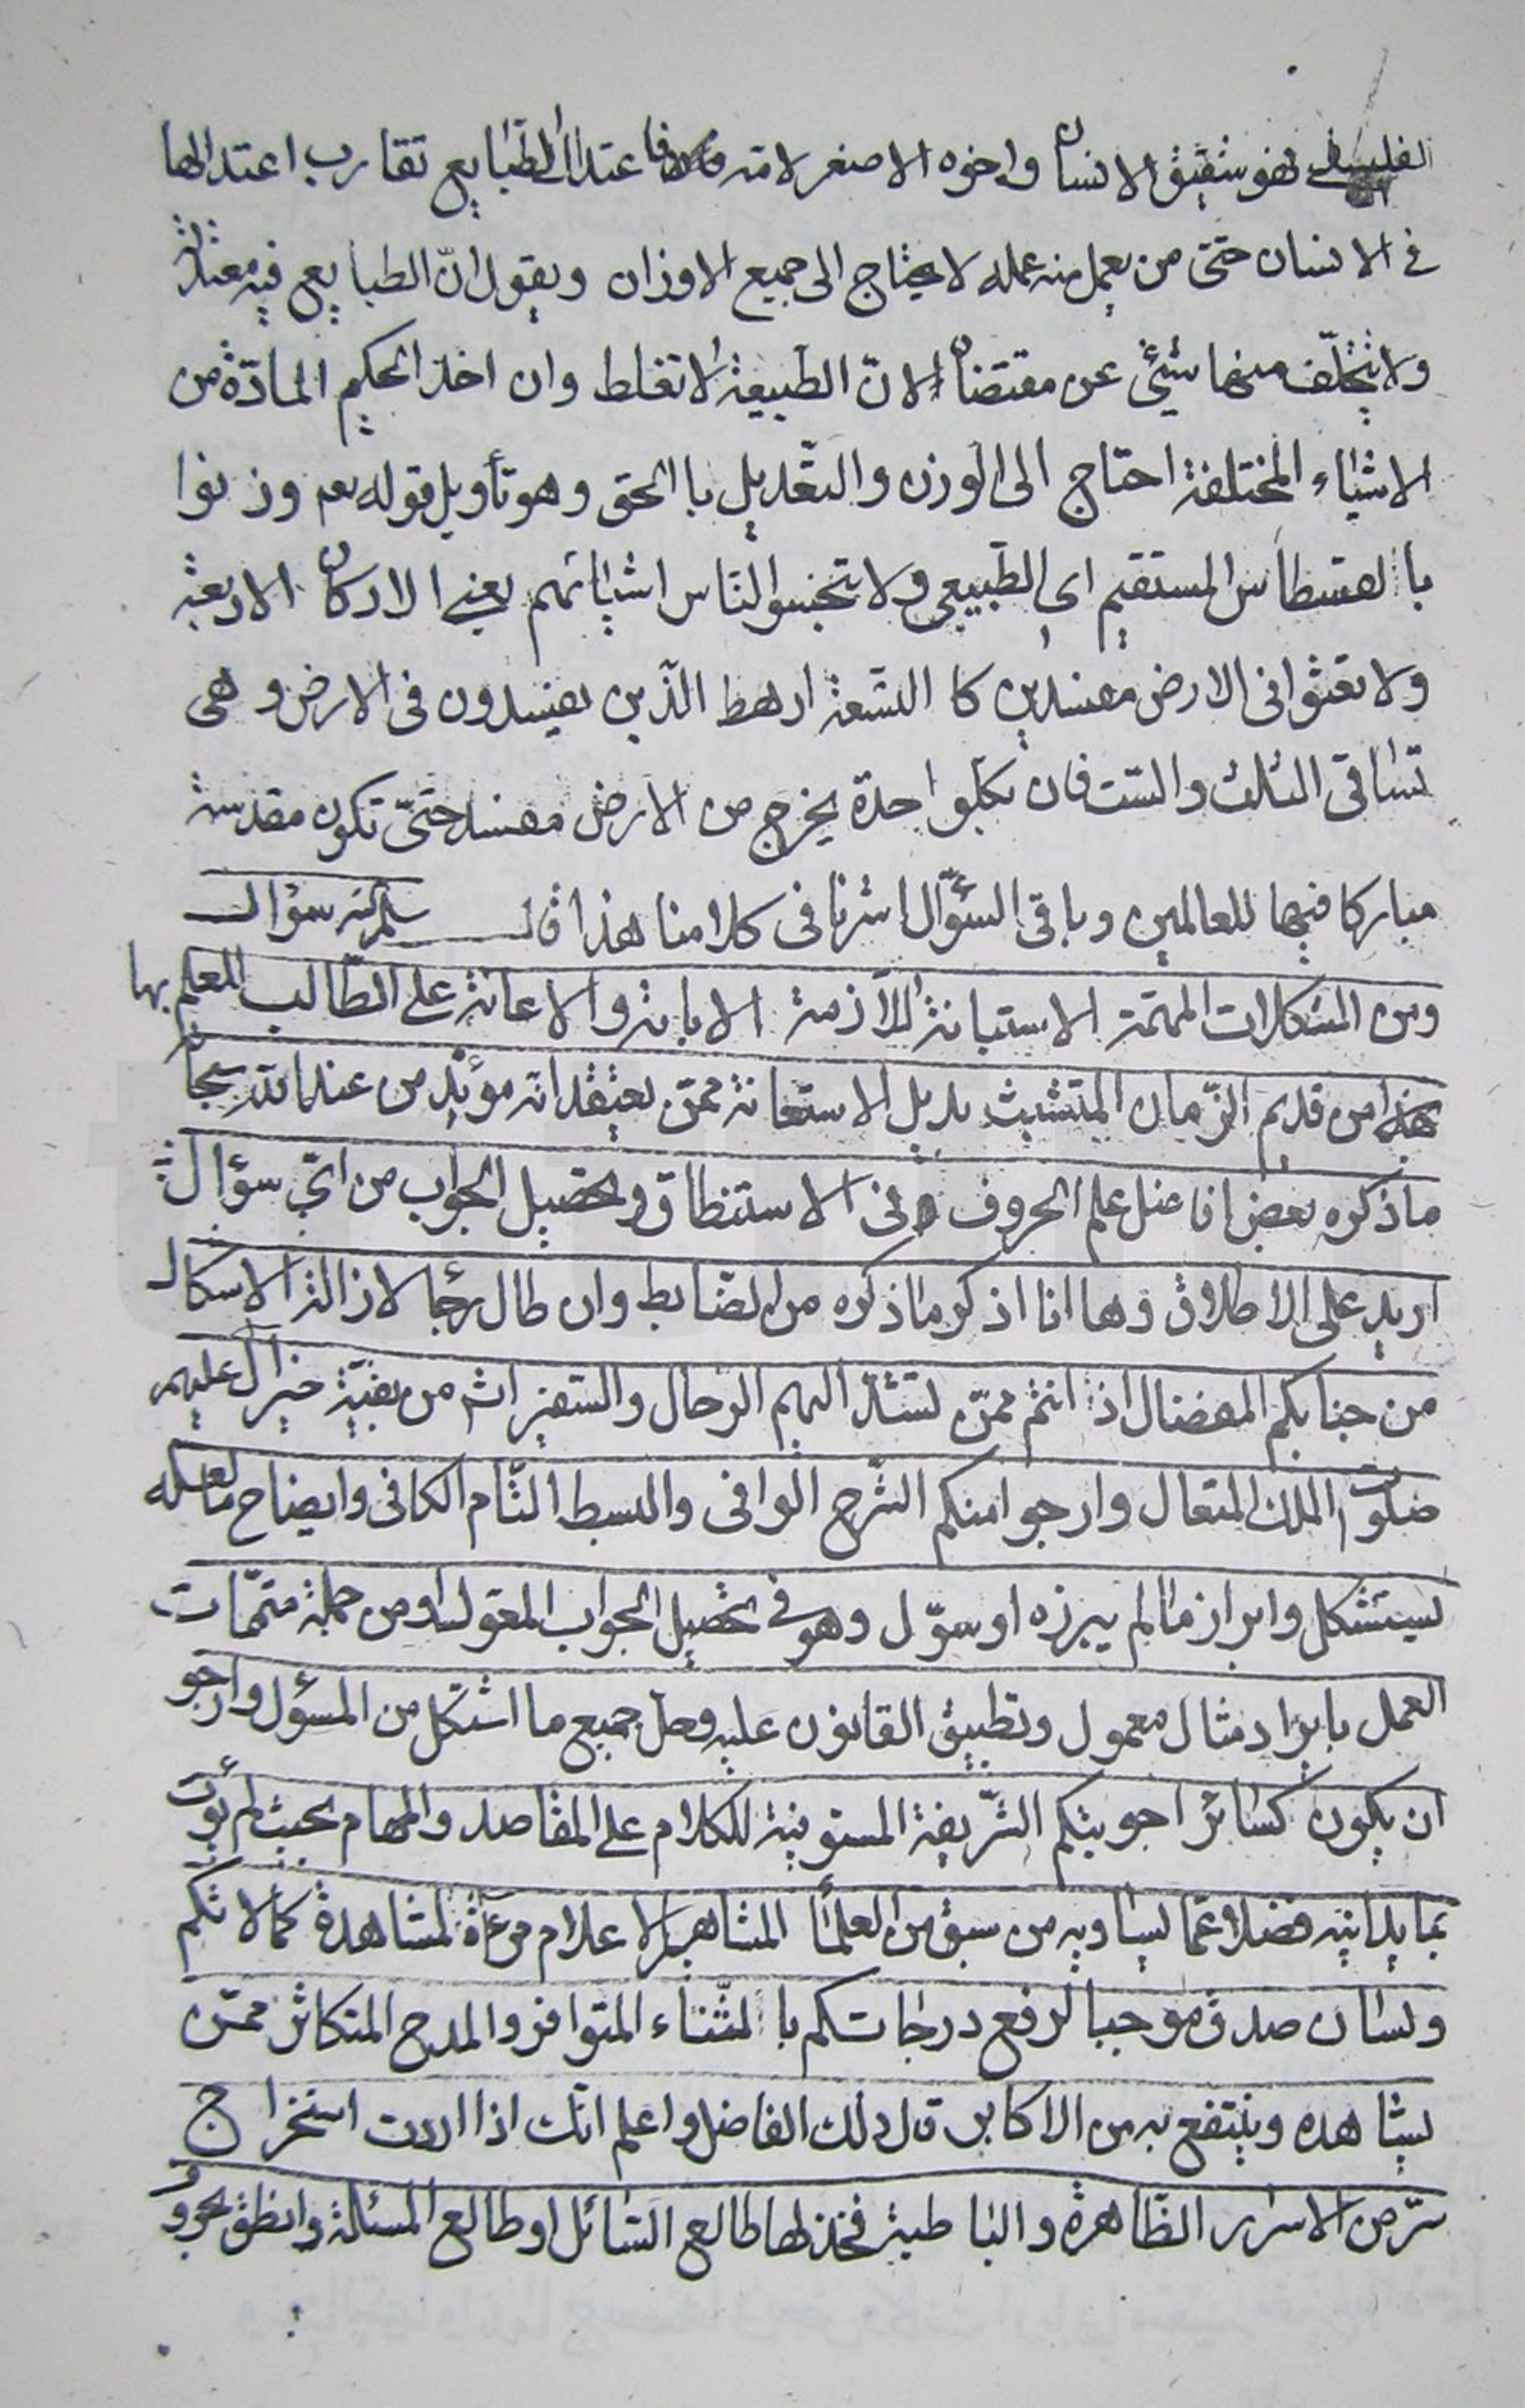 الفلسفى فهو شقيق الانسان واخوه الاصغر لانه اعتدال الطبايع تقارب اعتدالها
فى الانسان حتى من يعمل منه عمله لا يحتاج الى جميع الاوزان ويقول انّ الطبايع فيه معتدلة
ولا يتخلّف منها شيئ عن مقتضاه لانّ الطبيعة لا تغلط وان اخذ الحكيم المادّة من
الاشياء المختلفة احتاج الى الوزن والتعديل باالحق وهو تأويل قوله تعم وزنوا
باالقسطاس المستقيم اى الطبيعى ولا تبخسوا الناس اشيائهم يعنى الاركان الاربعة
ولا تعثوا فى الارض مفسدين كا التسعة ارهط الّذين يفسدون فى الارض وهى
تساقى الثلث والستّ فان بكلّواحدة يخرج من الارض مفسد حتّى تكون مقدسة
مباركا فيها للعالمين وباقى السؤال اشرنا فى كلامنا هذا قال سلمه الله سؤال
ومن المشكلات المهمّة الاستبانة اللّازمة الابانة والاعانة على الطّالب للعلم بها
من قديم الزّمان المتشبث بذيل الاستعانة ممّن يعتقد انه مؤيّد من عند الله سبحانه
ما ذكره بعض افاضل علم الحروف فى الاستنطاق وتحصيل الجواب من اىّ سؤال
اريد على الاطلاق وها انا اذكر ما ذكره من الضّابط وان طال رجاء لازالة الاشكال
من جنابكم المفضال اذ انتم ممّن تشدّ اليهم الرحال والستفيزات من بقيّة خير آل عليهم
صلوات الملك المتعال وارجوا منكم الشّرح الوافى والبسط التّام الكافى وايضاح ما لعله
يستشكل وابراز ما لم يبرزه او سوّل وهو فى تحصيل الجواب المعّول ومن جملة متمّمات
العمل بايراد مثال معمول وتطبيق القانون عليه وحلّ جميع ما اشتكل من المسؤل وارجو
ان يكون كسائر اجوبتكم الشّريفة المستوفية للكلام على المقاصد والمهام بحيث لم يؤت
بما يدانيه فضلا عمّا يساويه من سبق من العلمأ المشاهير الاعلام مرءاة لمشاهدة كمالاتكم
ولسان صدق موجبا لرفع درجاتكم باالثّناء المتوافر والمدح المتكاثر ممّن
يشاهده وينتفع به من الاكابر قال ذلك الفاضل واعلم انّك اذا اردت استخراج
سرّ من الاسرار الظّاهرة والباطنية فخذ لها طالع السّائل او طالع المسئلة وانطق بحروف